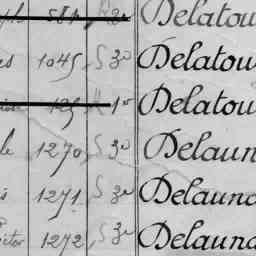 581 Delatou
es 1045 S 3º Delatou
125 1º Delatou
le 1270 S 3º Delaun
is 1271 S 3º Delauna
ctor 1272 S 3º Delauna